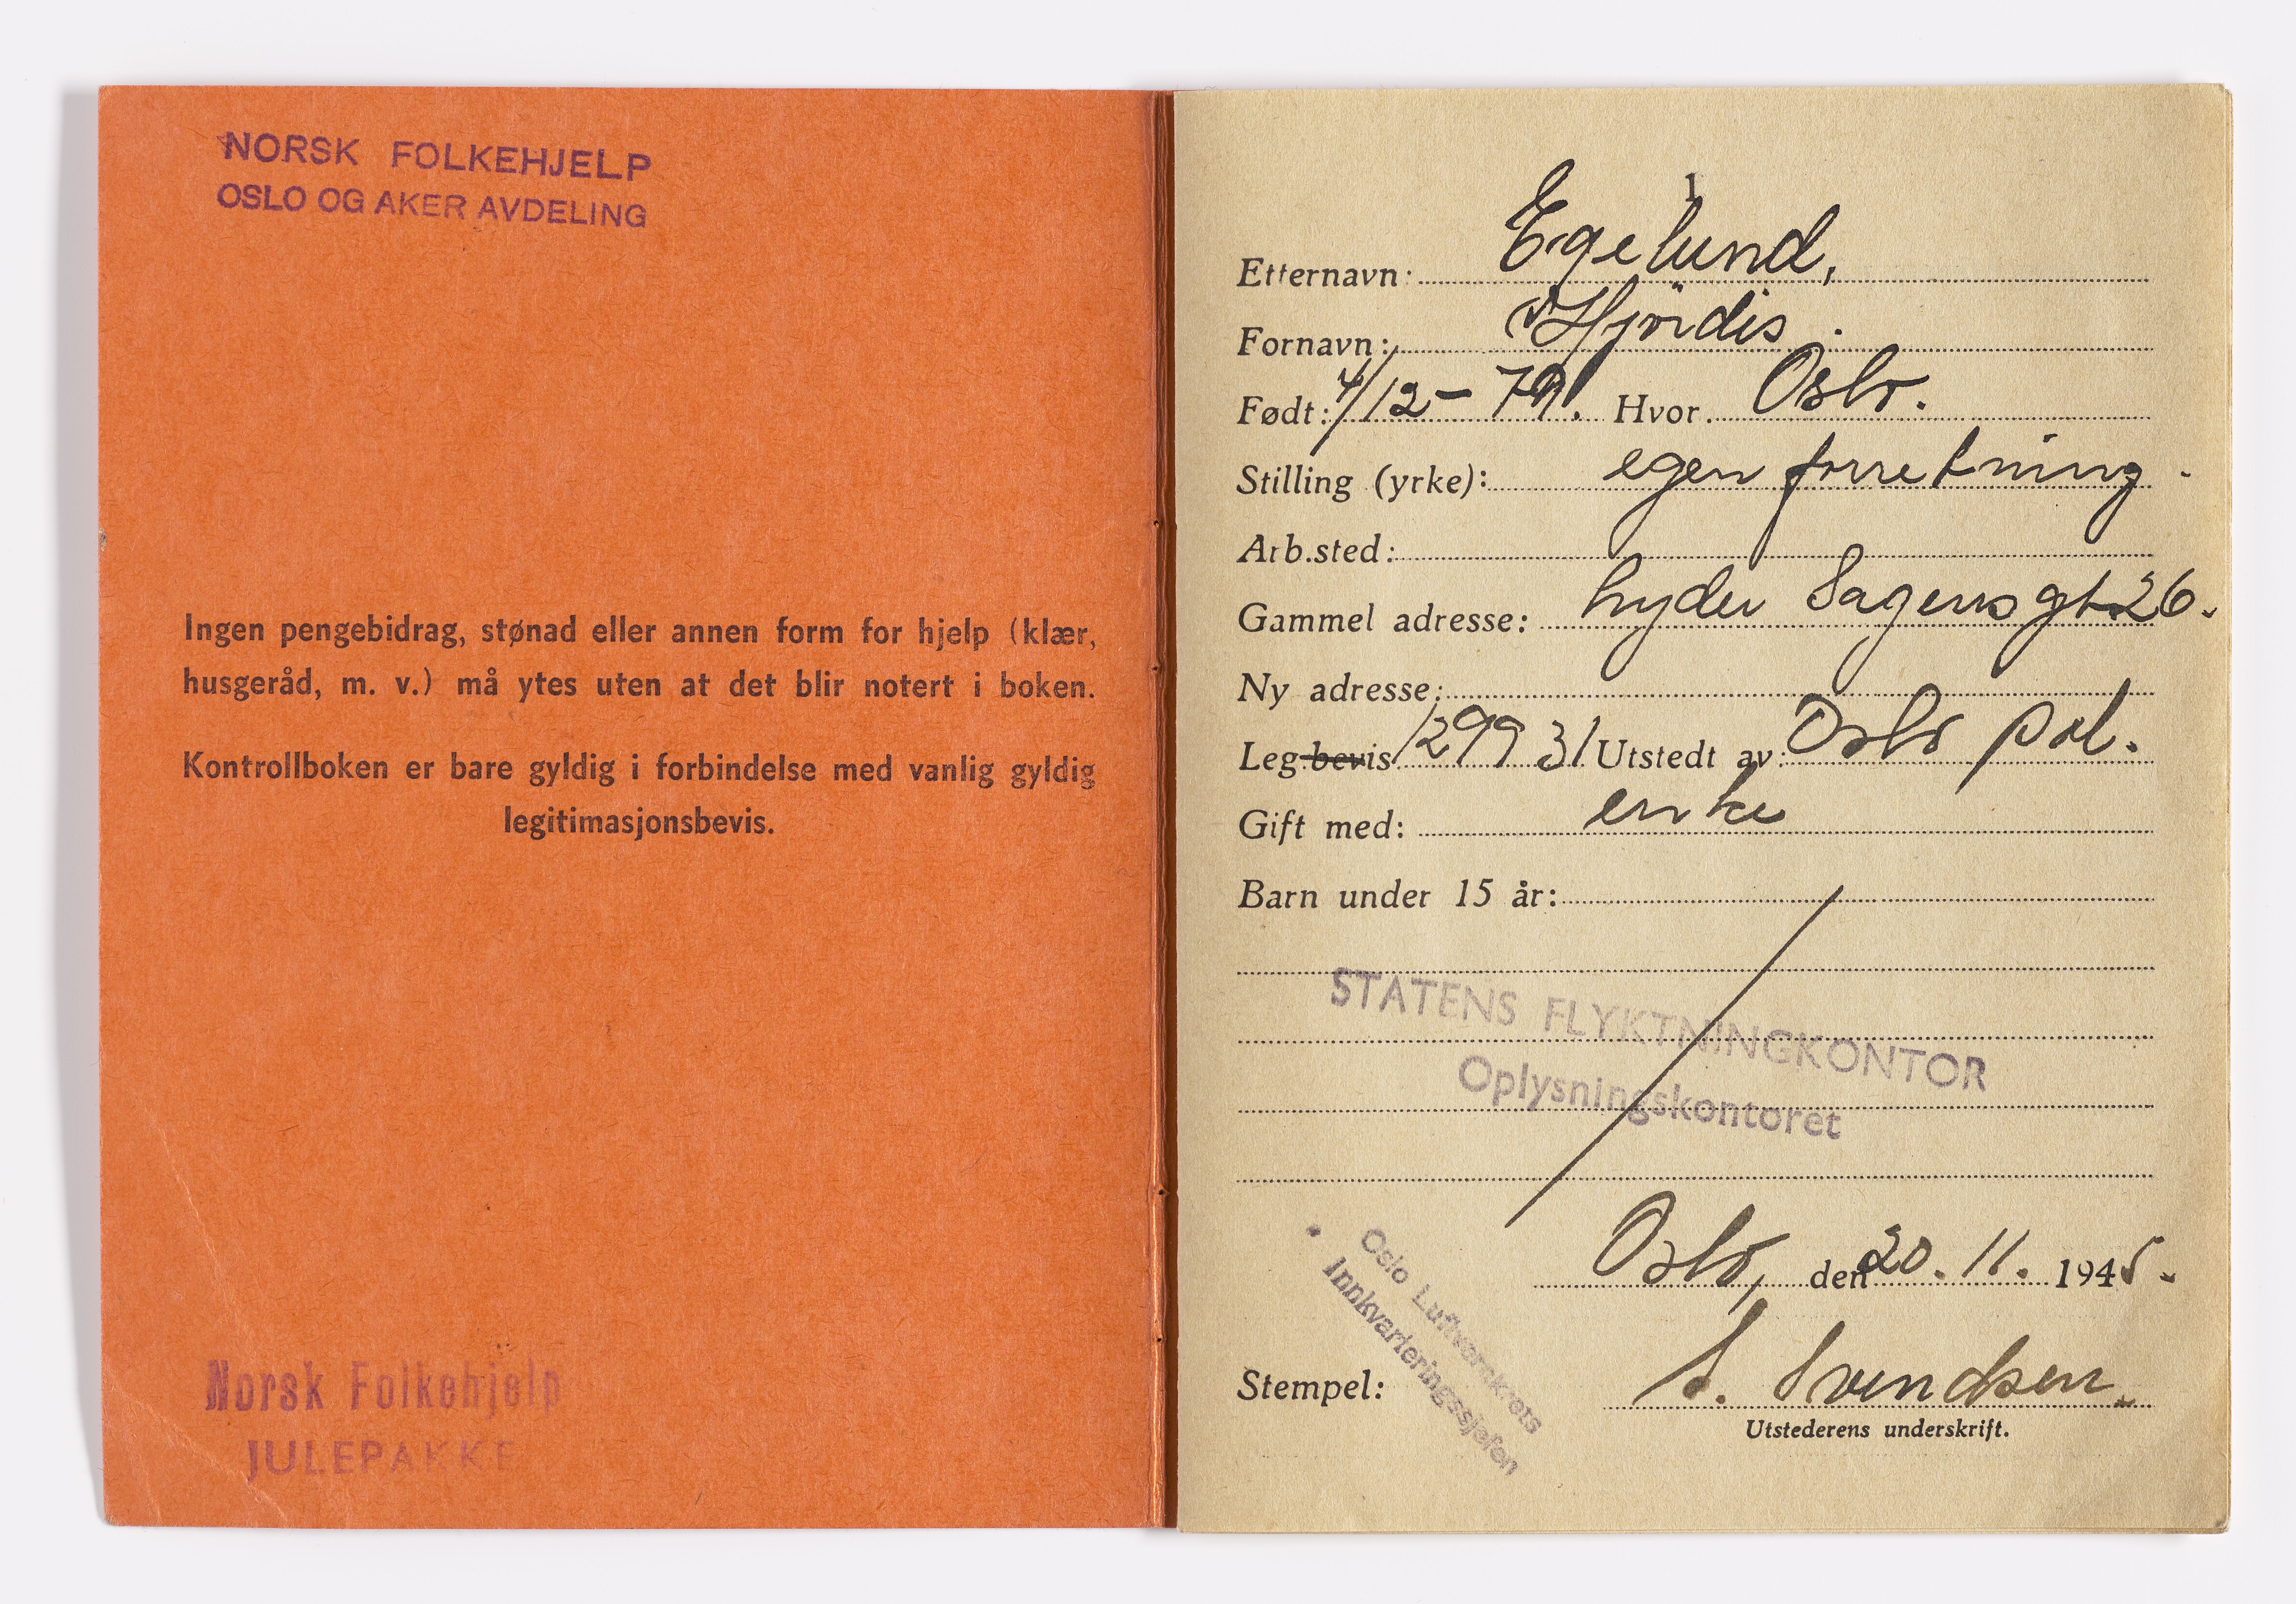 NORSK FOLKEHJELP
OSLO OG AKER AVDELING
Ingen pengebidrag, stønad eller annen form for hjelp (klær,
husgeråd, m. v.) må ytes uten at det blir notert i boken.
Kontrollboken er bare gyldig i forbindelse med vanlig gyldig
legitimasjonsbevis.
Norsk Folkehjelp
JULEPAKKE
1
Etternavn: Egelund,
Fornavn: Hjördis.
Født: 4/12-79. Hvor. Oslo.
Stilling (yrke): egen forretning.
Arb.sted:
Gammel adresse: Lyder Sagensgt 26.
Ny adresse:
Leg.bevis 129931 Utstedt av: Oslo pol.
Gift med: enke
Barn under 15 år:
STATENS FLYKTNINGKONTOR
Oplysningskontoret
Oslo, den 20. 11. 1945.
Oslo Luftvernkrets
Innkvarteringssjefen
Stempel: S. Svendsen.
Utstederens underskrift.